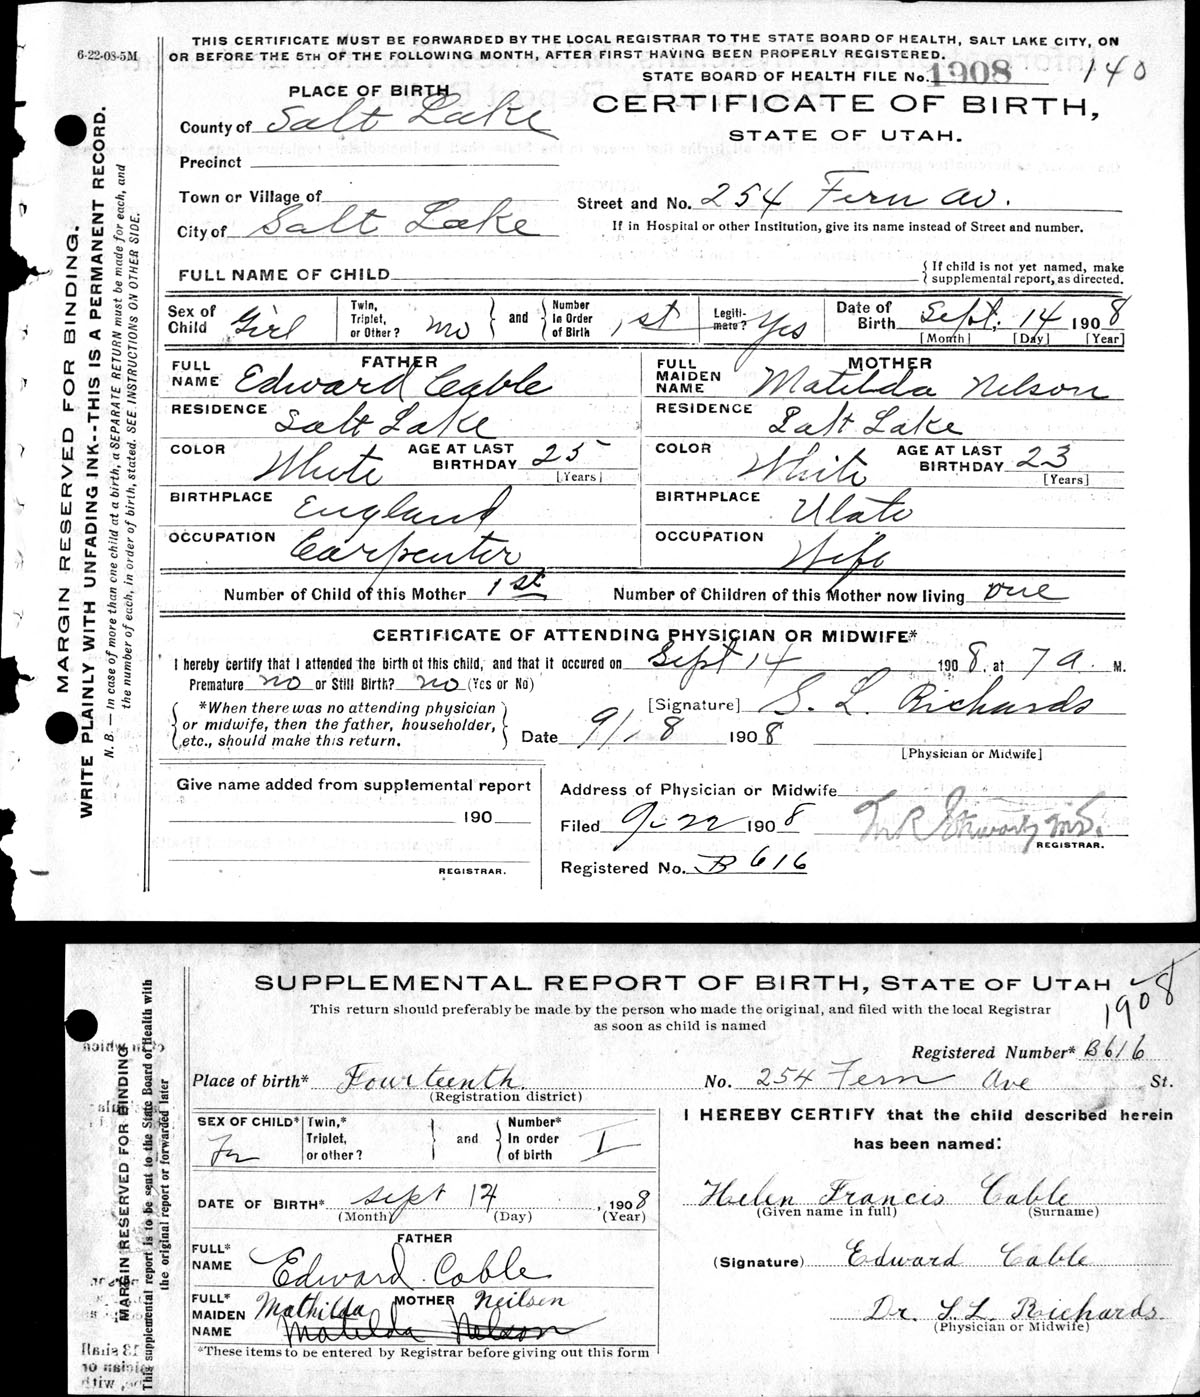 6-22-08-5M
THIS CERTIFICATE MUST BE FORWARDED BY THE LOCAL REGISTRAR TO THE STATE BOARD OF HEALTH, SALT LAKE CITY, ON
OR BEFORE THE 5TH OF THE FOLLOWING MONTH, AFTER FIRST HAVING BEEN PROPERLY REGISTERED.
STATE BOARD OF HEALTH FILE No. 1908 140
PLACE OF BIRTH
CERTIFICATE OF BIRTH,
STATE OF UTAH.
County of Salt Lake
Precinct
Town or Village of
Street and No. 254 Fern Av.
City of Salt Lake
If in Hospital or other Institution, give its name instead of Street and number.
FULL NAME OF CHILD
{ If child is not yet named, make
{ supplemental report, as directed.
Sex of Child Girl
Twin, Triplet, or Other? no } and { Number In Order of Birth 1st
Legiti-mate? Yes
Date of Birth Sept. 14 1908
[Month] [Day] [Year]
FATHER
FULL NAME Edward Cable
MOTHER
FULL MAIDEN NAME Matilda Nelson
RESIDENCE Salt Lake
RESIDENCE Salt Lake
COLOR White AGE AT LAST BIRTHDAY 25 [Years]
COLOR White AGE AT LAST BIRTHDAY 23 [Years]
BIRTHPLACE England
BIRTHPLACE Utah
OCCUPATION Carpenter
OCCUPATION Wife
Number of Child of this Mother 1st Number of Children of this Mother now living one
CERTIFICATE OF ATTENDING PHYSICIAN OR MIDWIFE*
I hereby certify that I attended the birth of this child, and that it occured on Sept 14 1908, at 7 a. M.
Premature no or Still Birth? no (Yes or No)
{ *When there was no attending physician
or midwife, then the father, householder,
etc., should make this return. }
[Signature] S. L. Richards
Date 9/18 1908
[Physician or Midwife]
Give name added from supplemental report
190
REGISTRAR.
Address of Physician or Midwife
Filed 9-22 1908
REGISTRAR.
Registered No. B 616
MARGIN RESERVED FOR BINDING.
WRITE PLAINLY WITH UNFADING INK--THIS IS A PERMANENT RECORD.
N. B.—In case of more than one child at a birth, a SEPARATE RETURN must be made for each, and
the number of each, in order of birth, stated. SEE INSTRUCTIONS ON OTHER SIDE.
SUPPLEMENTAL REPORT OF BIRTH, STATE OF UTAH
1908
This return should preferably be made by the person who made the original, and filed with the local Registrar
as soon as child is named
Registered Number* B616
Place of birth* Fourteenth No. 254 Fern Ave St.
(Registration district)
SEX OF CHILD* Fe
Twin,* Triplet, or other? } and { Number* In order of birth I
DATE OF BIRTH* Sept 14, 1908
(Month) (Day) (Year)
FATHER
FULL* NAME Edward Cable
MOTHER
FULL* MAIDEN NAME Mathilda Neilsen
Matilda Nelson
*These items to be entered by Registrar before giving out this form
I HEREBY CERTIFY that the child described herein
has been named:
Helen Francis Cable
(Given name in full) (Surname)
(Signature) Edward Cable
Dr. S. L. Richards
(Physician or Midwife)
MARGIN RESERVED FOR BINDING
This supplemental report is to be sent to the State Board of Health with
the original report or forwarded later